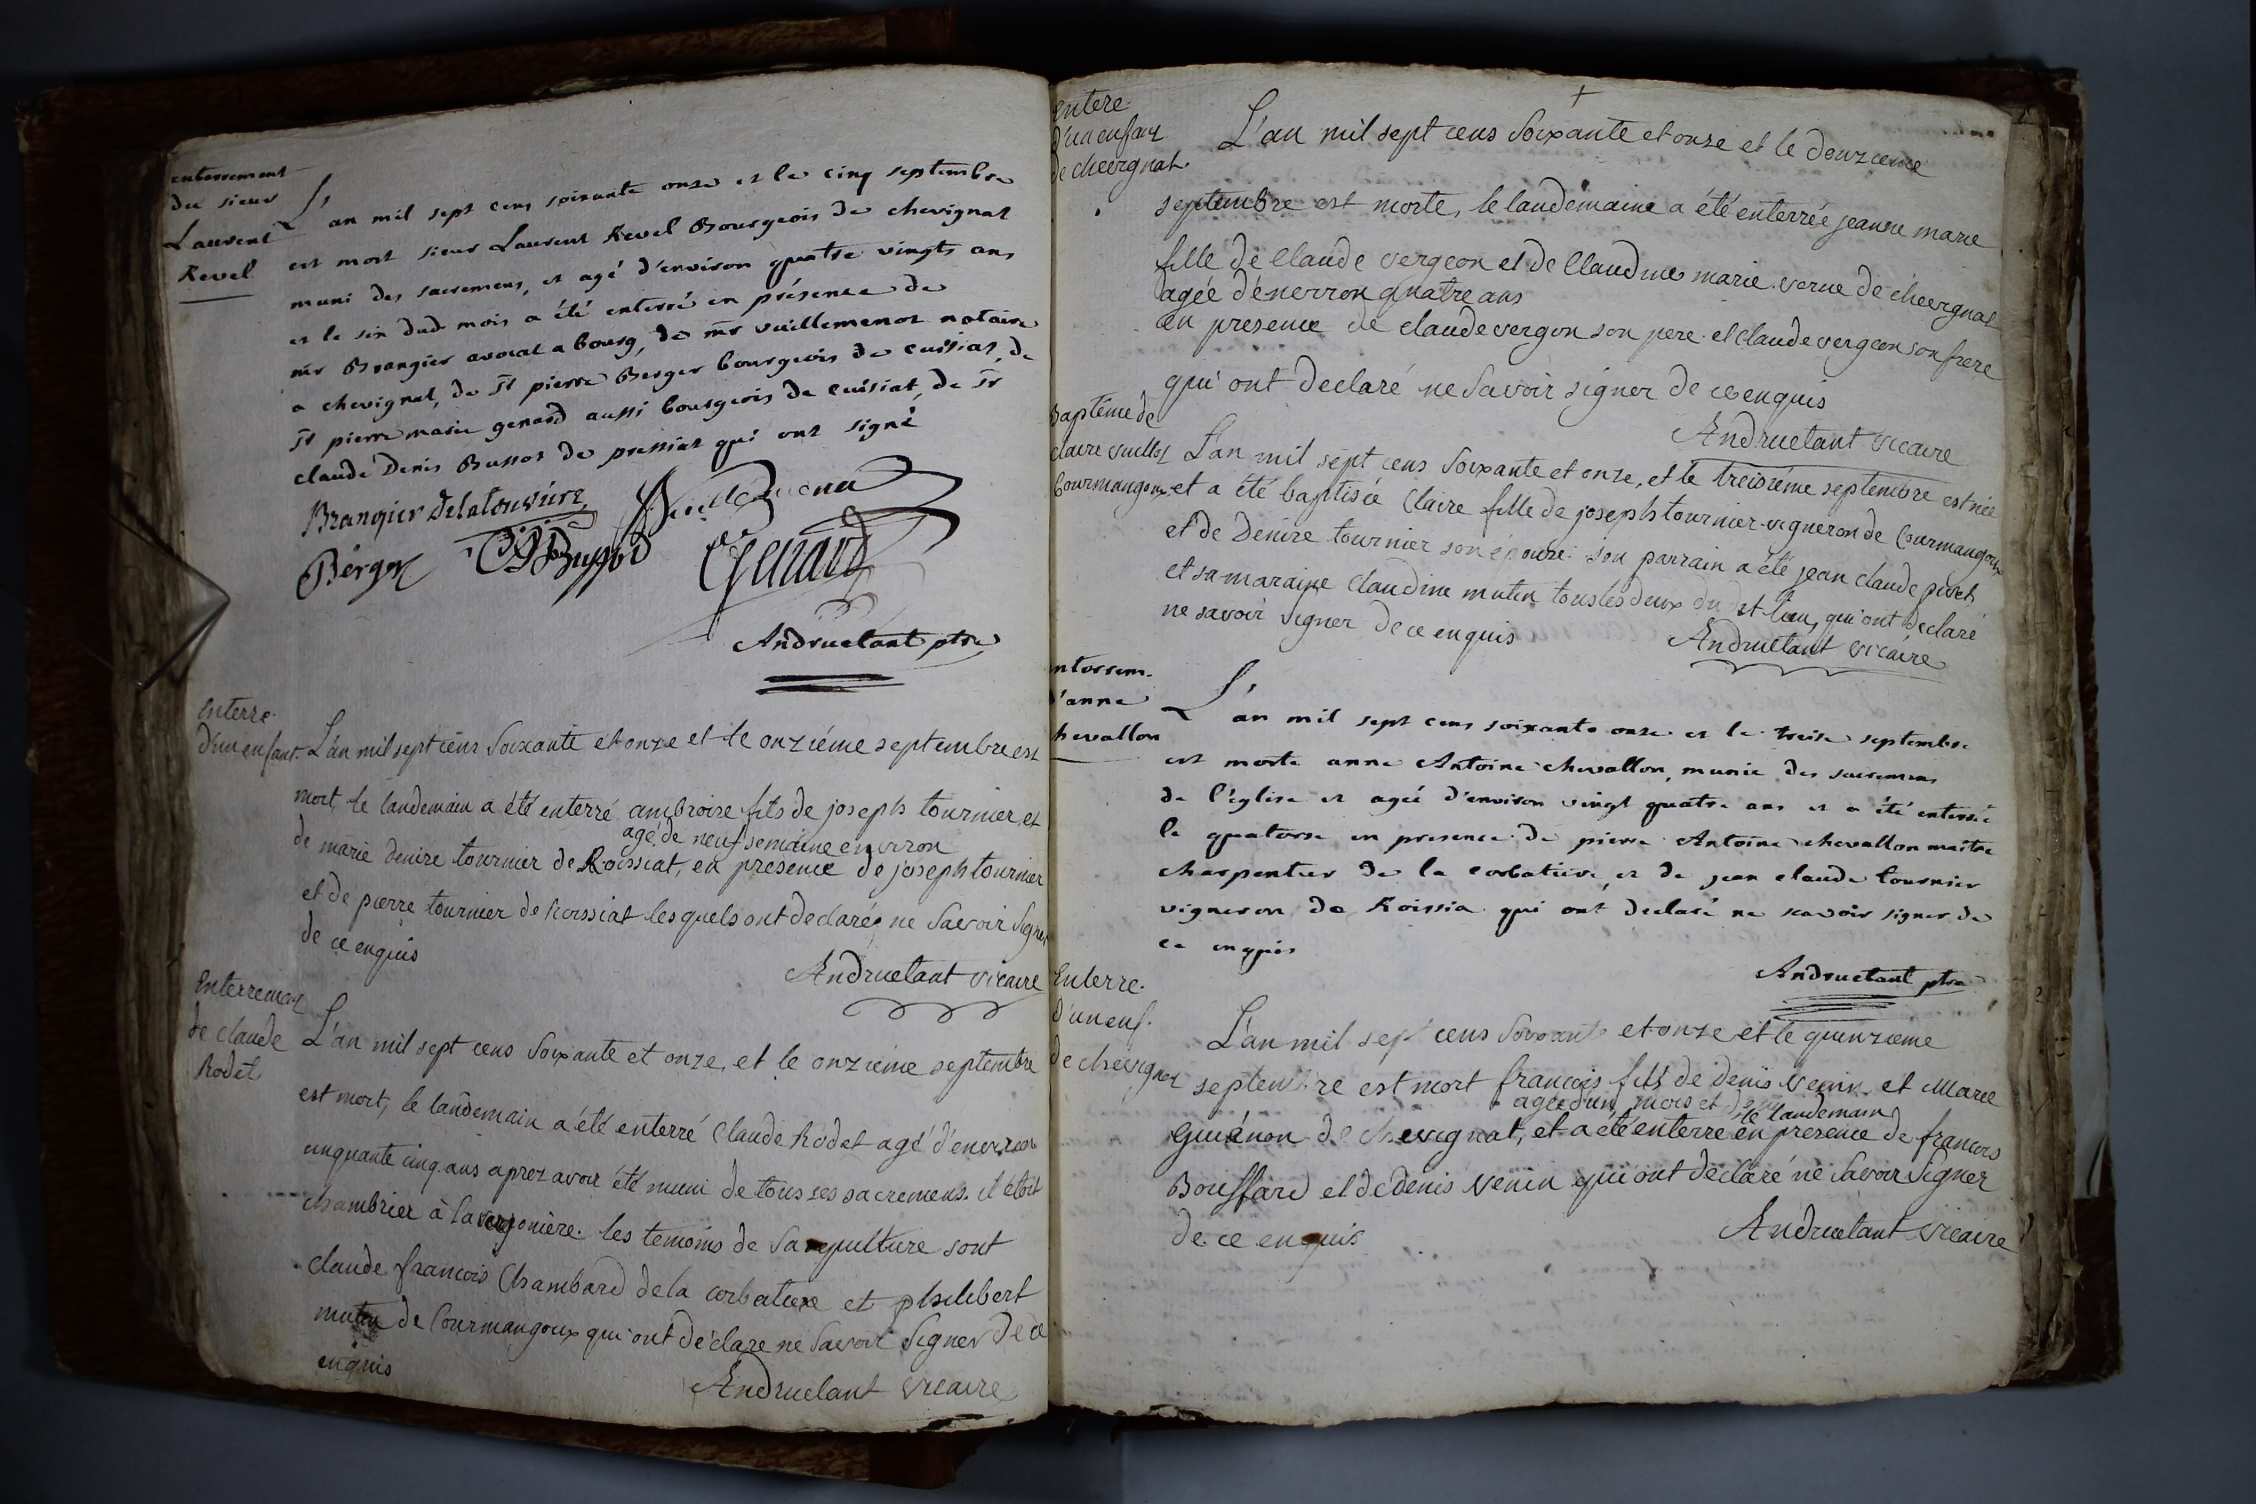 enterrement
du sieur
Laurent
Revel
L'an mil sept cens soixante onze et le cinq septembre
est mort sieur Laurent Revel Bourgeois de chevignat
muni des sacremens, et agé d'environ quatre vingts ans
et le six dud. mois a été enterré en présence de
mr Brangier avocat a bourg, de mr vuillemenot notaire
a chevignat, de Sr pierre Berger bourgeois de cuisiat, de
Sr pierre marie genard aussi bourgeois de cuisiat, de Sr
claude Denis Bussod de pressiat qui ont signé
Brangier Delatouviere
Berger Bussod Genard
Andruetant ptre
Enterre.
d'un enfant.
L'an mil sept cens Soixante et onze et le onziéme septembre est
mort, le landemain a été enterré ambroise fils de joseph tournier et
agé de neuf semaine environ
de marie denise tournier de Roissiat, en presence de joseph tournier
et de pierre tournier de Roissiat lesquels ont declaré ne Savoir signer
de ce enquis
Andruetant vicaire
Enterrement
de claude
Rodet
L'an mil sept cens Soixante et onze, et le onzième septembre
est mort, le landemain a été enterré Claude Rodet agé d'environ
cinquante cinq ans aprez avoir été muni de tous ses sacremens. il étoit
chambrier à la verjonière. les temoins de Sa sepulture sont
claude francois Chambard de la corbatiere et philibert
mutin de Courmangoux qui ont déclaré ne Savoir Signer de ce
enquis
Andruetant vicaire
entere.
d'un enfant
de chevignat.
L'an mil sept cens Soixante et onze et le douzieme
septembre est morte, le landemaine a été enterrée jeanne marie
fille de Claude vergeon et de Claudine marie verne de chevignat
agée d'enverron quatre ans
en presence de claude vergon son pere et claude vergeon son frere
qui ont declaré ne Savoir signer de ce enquis
Andruetant vicaire
Baptême de
claire
Courmangoux
L'an mil sept cens Soixante et onze, et le treizième septembre est née
et a été baptisée Claire fille de joseph tournier vigneron de Courmangoux
et de Denise tournier son épouse. son parrain a été jean claude pivet
et sa maraine Claudine mutin tous les deux du dit lieu, qui ont declaré
ne savoir signer de ce enquis
Andruetant vicaire
ntossem.
d'anne
hevallon
L'an mil sept cens soixante onze et le treize septembre
est morte anne Antoine chevallon, munie des sacremens
de l'église et agée d'environ vingt quatre ans et a été enterrée
le quatorse en presence de pierre Antoine chevallon maitre
charpentier de la corbatiere, et de jean claude tournier
vigneron de Roissia qui ont declaré ne scavoir signer de
ce enquis
Andruetant ptre
Enterre.
d'un enf.
de chevignat
L'an mil sept cens Soixante et onze et le quinzieme
septembre est mort francois fils de Denis venin et Marie
agée d'un mois et demi le landemain
Guiénon de chevignat, et a été enterré en presence de francois
Bouffard et de denis venin qui ont déclaré ne Savoir Signer
de ce enquis
Andruetant vicaire